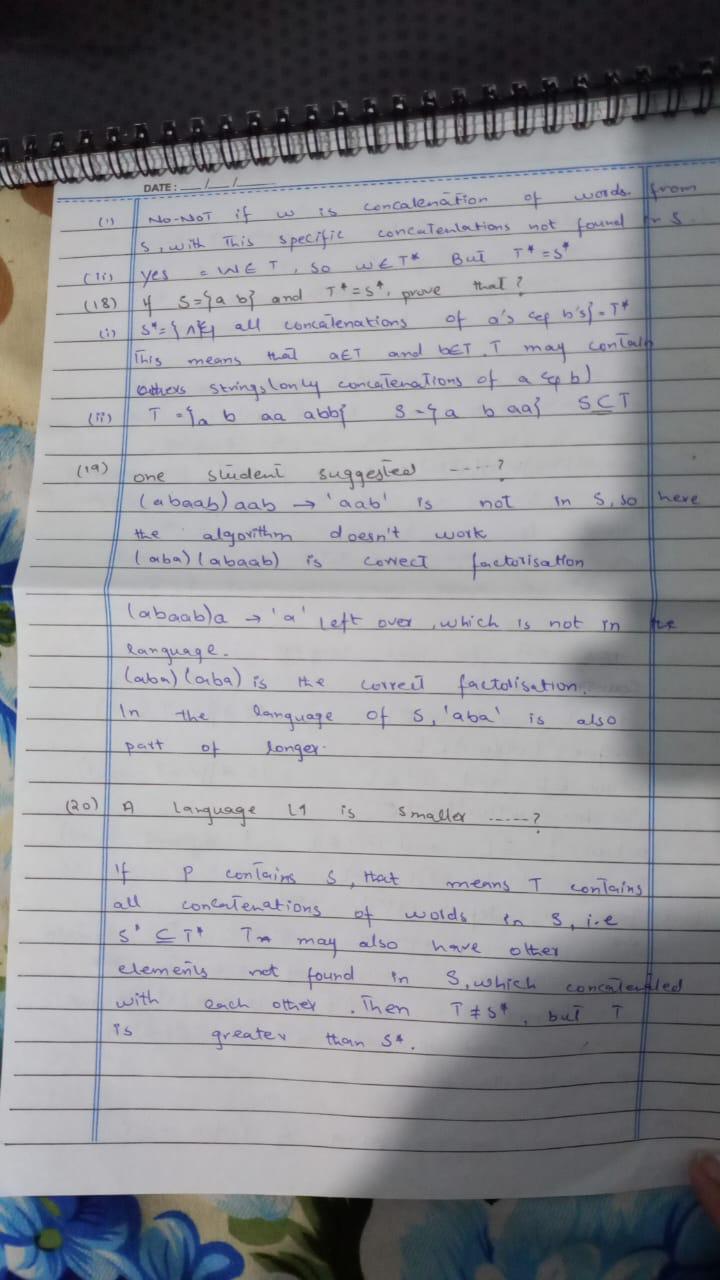 DATE: __/__/__
(i) No-NOT if w is concatenation of words from
S, with This specific concatenations not found in S.
(iii) yes = WET, so WET* But T* = S*
(18) If S={a b} and T*=S*, prove that?
(i) S*={Λ all concatenations of a's b's}=T*
This means that aET and bET.T may contain
others strings(only concatenations of a b)
(ii) T ={a b aa abb} S={a b aa} S⊂T
(19) one student suggested ----?
(abaab)aab → 'aab' is not in S, so here
the algorithm doesn't work
(aba)(abaab) is correct factorisation
(abaab)a → 'a' left over, which is not in the
language.
(aba)(aba) is the correct factolisation.
In the language of S, 'aba' is also
part of longer.
(20) A language L1 is smaller -----?
If P contains S, that means T contains
all concatenations of words in S, i.e
S* ⊆ T* T* may also have other
elements not found in S, which concatenated
with each other. Then T ≠ S*, but T
is greater than S*.